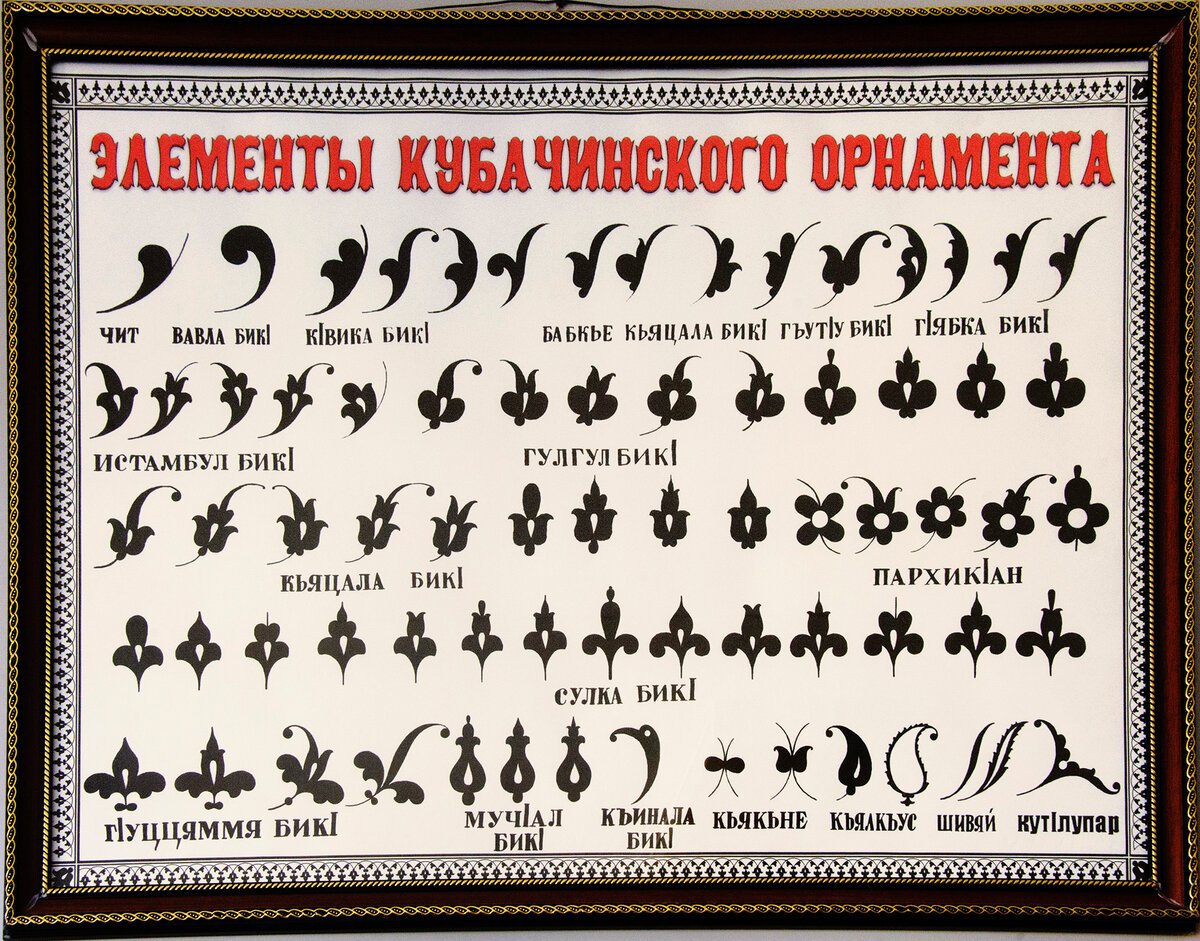 ЭЛЕМЕНТЫ КУБАЧИНСКОГО ОРНАМЕНТА
ЧИТ ВАВЛА БИКІ КІВИКА БИКІ БАБКЬЕ КЬЯЦАЛА БИКІ ГЪУТІУ БИКІ ГІЯБКА БИКІ
ИСТАМБУЛ БИКІ ГУЛГУЛ БИКІ
КЬЯЦАЛА БИКІ ПАРХИКІАН
СУЛКА БИКІ
ГІУЦЦЯММЯ БИКІ МУЧІАЛ БИКІ КЪИНАЛА БИКІ КЬЯКЬНЕ КЪЯЛКЪУС ШИВЯЙ КУТІЛУПАР